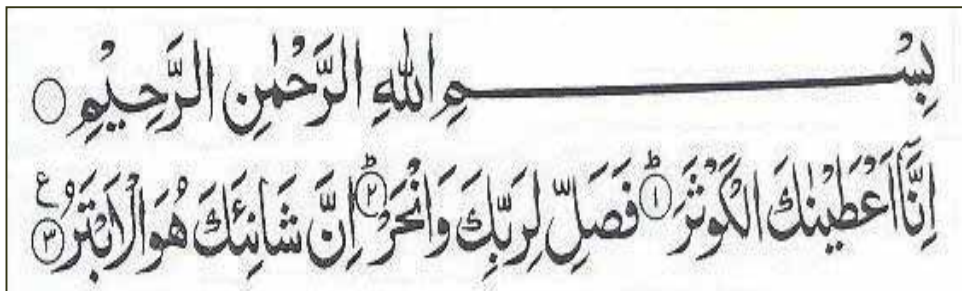 بِسْمِ اللّٰهِ الرَّحْمٰنِ الرَّحِيْمِ ○
اِنَّاۤ اَعْطَيْنٰكَ الْكَوْثَرَ ؕ﴿۱﴾ فَصَلِّ لِرَبِّكَ وَانْحَرْ ؕ﴿۲﴾ اِنَّ شَانِئَكَ هُوَ الْاَبْتَرُ ﴿۳﴾ ع